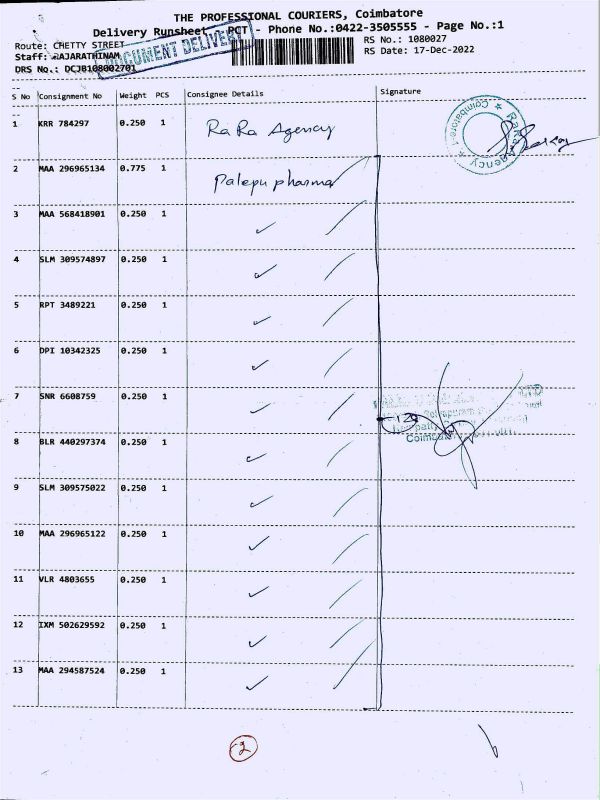 THE PROFESSIONAL COURIERS, Coimbatore
Delivery Runsheet, PCT - Phone No.:0422-3505555 - Page No.:1
Route: CHETTY STREET RS No.: 1080027
Staff: RAJARATHINAM RS Date: 17-Dec-2022
DOCUMENT DELIVERY
DRS No.: DCJB108002701
S No Consignment No Weight PCS Consignee Details Signature
1 KRR 784297 0.250 1 Ra Ra Agency
RaRa Agency ★ Coimbatore-1 ★
2 MAA 296965134 0.775 1 Palepu pharma
3 MAA 568418901 0.250 1
4 SLM 309574897 0.250 1
5 RPT 3489221 0.250 1
6 DPI 10342325 0.250 1
7 SNR 6608759 0.250 1
LTD
12
8 BLR 440297374 0.250 1
9 SLM 309575022 0.250 1
10 MAA 296965122 0.250 1
11 VLR 4803655 0.250 1
12 IXM 502629592 0.250 1
13 MAA 294587524 0.250 1
2